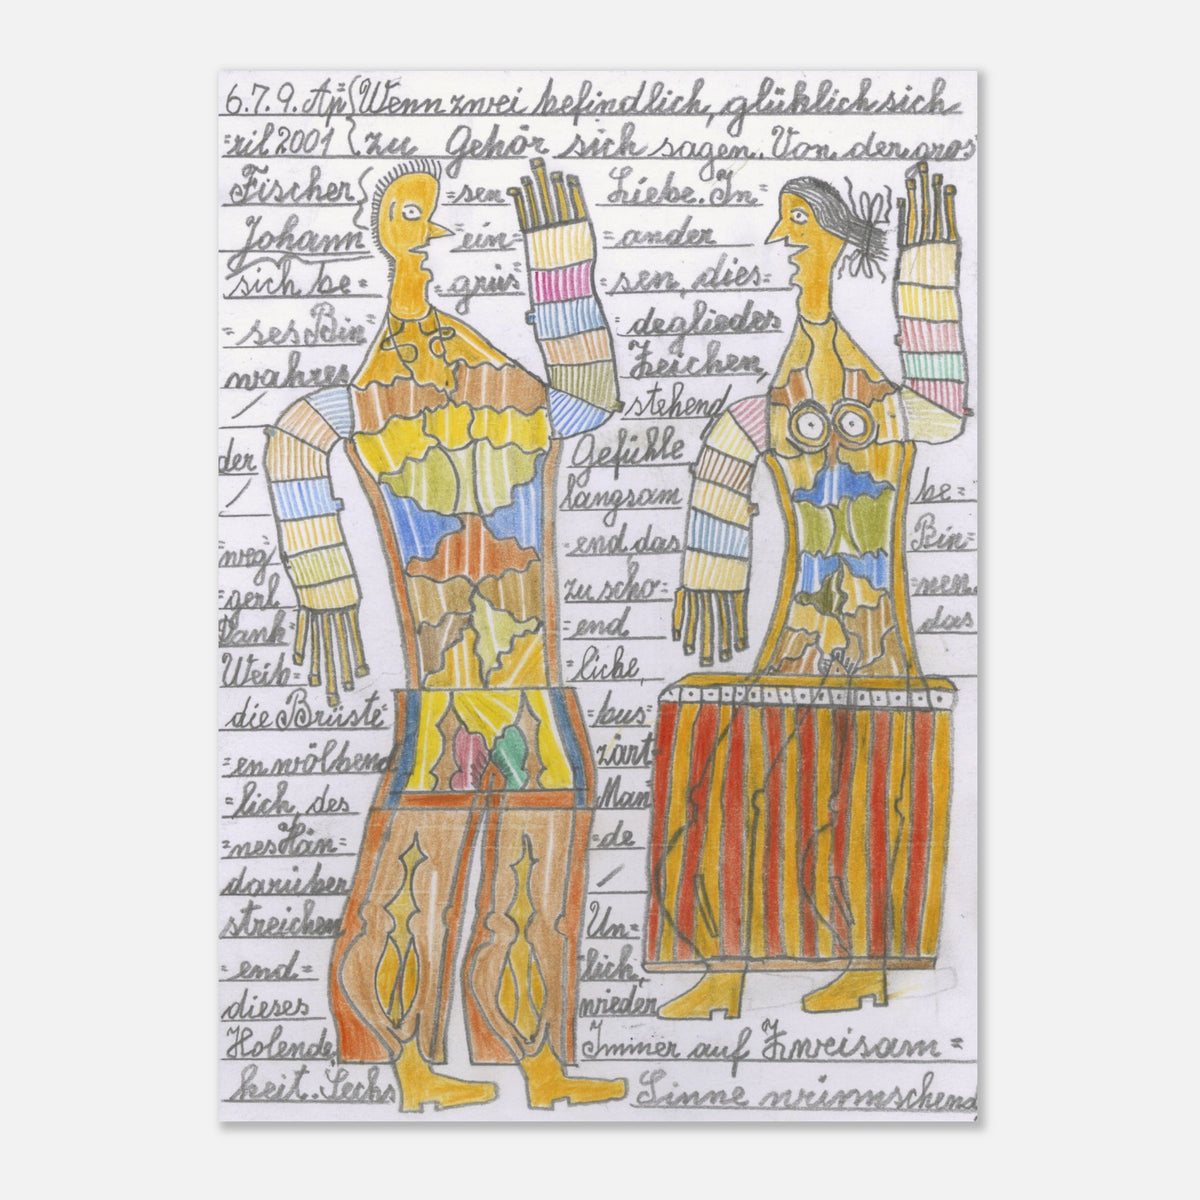 6.7.9. Ap= Wenn zwei befindlich, glüklich sich
=ril 2001 zu Gehör sich sagen. Von, der gros
Fischer =sen Liebe. In=
Johann =ein= =ander
sich be= =grüs= =sen, dies=
=ses Bin =degliedes
wahres Zeichen,
/ stehend
der Gefühle
/ langsam be=
weg =end, das Bin=
=gerl zu scho= =nen.
Dank =end das
Weib= =liche,
die Brüste =bus=
=en wölbend zärt=
=lich, des Man
=nes Hän= =de
darüber /
streichen Un=
=end= =lich,
dieses wieder
Holende Immer auf Zweisam=
keit. Sechs Sinne